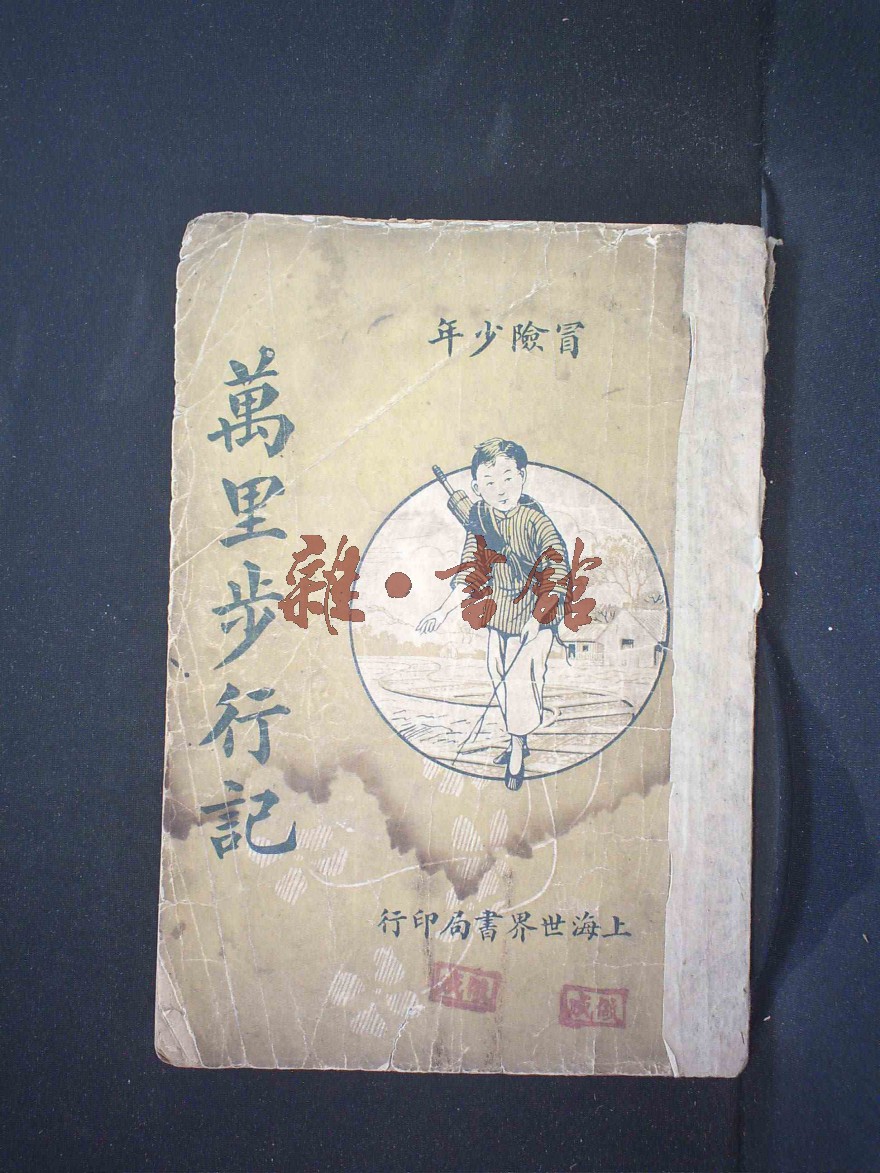 冒險少年
萬里步行記
雜·書館
上海世界書局印行